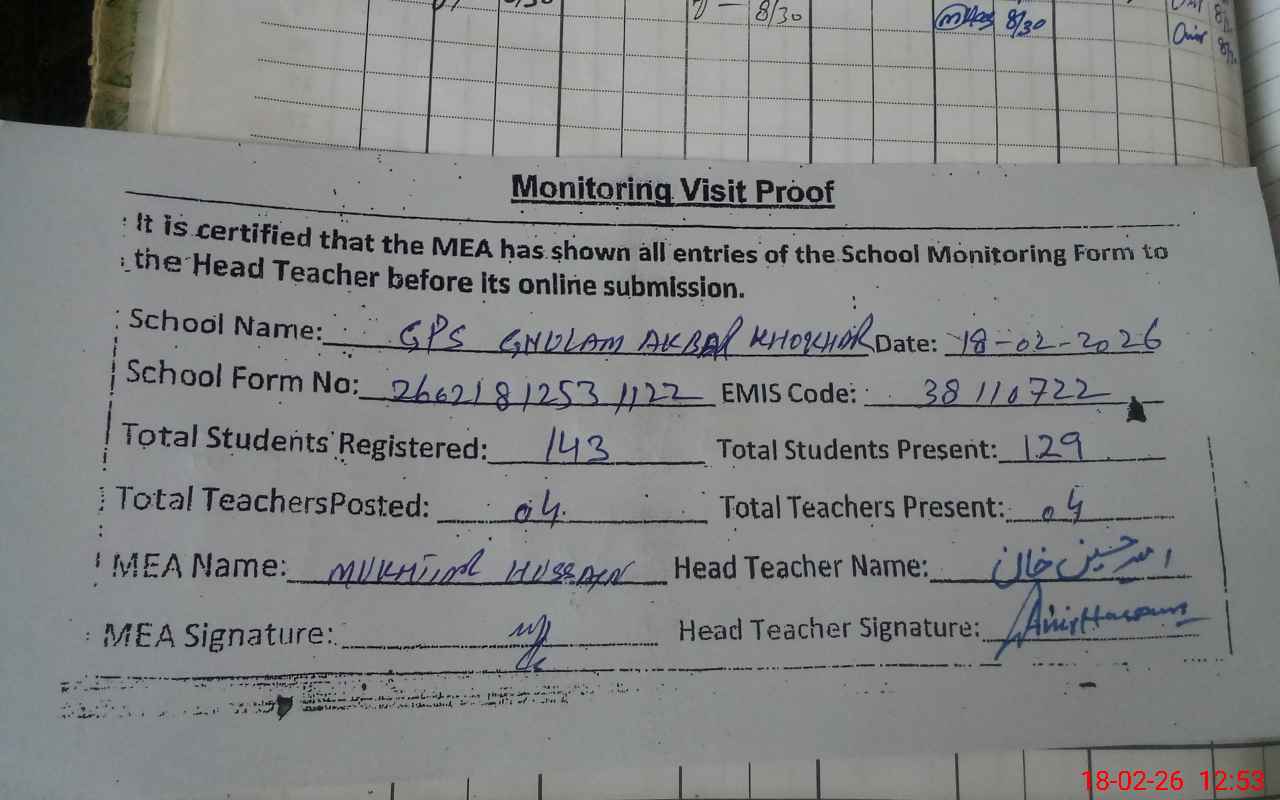 8/30
8/30
Monitoring Visit Proof
It is certified that the MEA has shown all entries of the School Monitoring Form to
the Head Teacher before its online submission.
School Name: GPS GHULAM AKBAR KHOKHAR Date: 18-02-2026
School Form No: 26621812531122 EMIS Code: 38110722
Total Students Registered: 143 Total Students Present: 129
Total TeachersPosted: 04 Total Teachers Present: 04
MEA Name: MUKHTIAR HUSSAIN Head Teacher Name: حسین خان
MEA Signature: Head Teacher Signature:
18-02-26 12:53